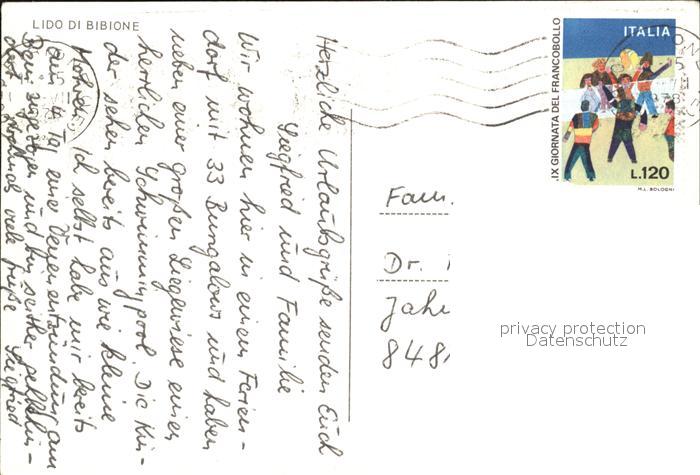 LIDO DI BIBIONE
Herzliche Urlaubsgrüße senden Euch
Siegfried und Familie
Wir wohnen hier in einem Ferien-
dorf mit 33 Bungalows und haben
neben einer großen Liegewiese einen
herrlichen Schwimmingpool. Die Kin-
der sehen bereits aus wie kleine
Mohren. Ich selbst habe mir bereits
am Tag eine Venenentzündung am
Bein zugezogen und bin seither
viele Grüße Siegfried
IX GIORNATA DEL FRANCOBOLLO
ITALIA
L.120
M.L. BOLOGNI
Fam.
Dr.
Jah
848
privacy protection
Datenschutz